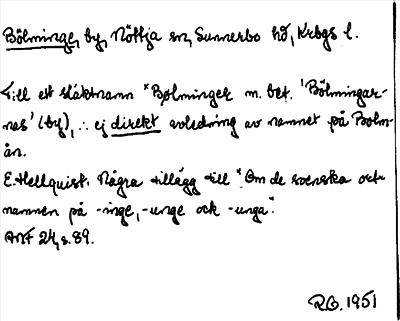 Bölminge, by, Nöttja sn, Sunnerbo hd, Krbgs l.
Till ett släktnamn *Bølmingeʀ m. bet. 'Bölmingar-
nas' (by), ∴ ej direkt avledning av namnet på Bolm-
ån.
E. Hellquist. Några tillägg till "Om de svenska ort-
namnen på -inge, -unge och -unga".
ANF 24, s. 89.
R.G. 1951